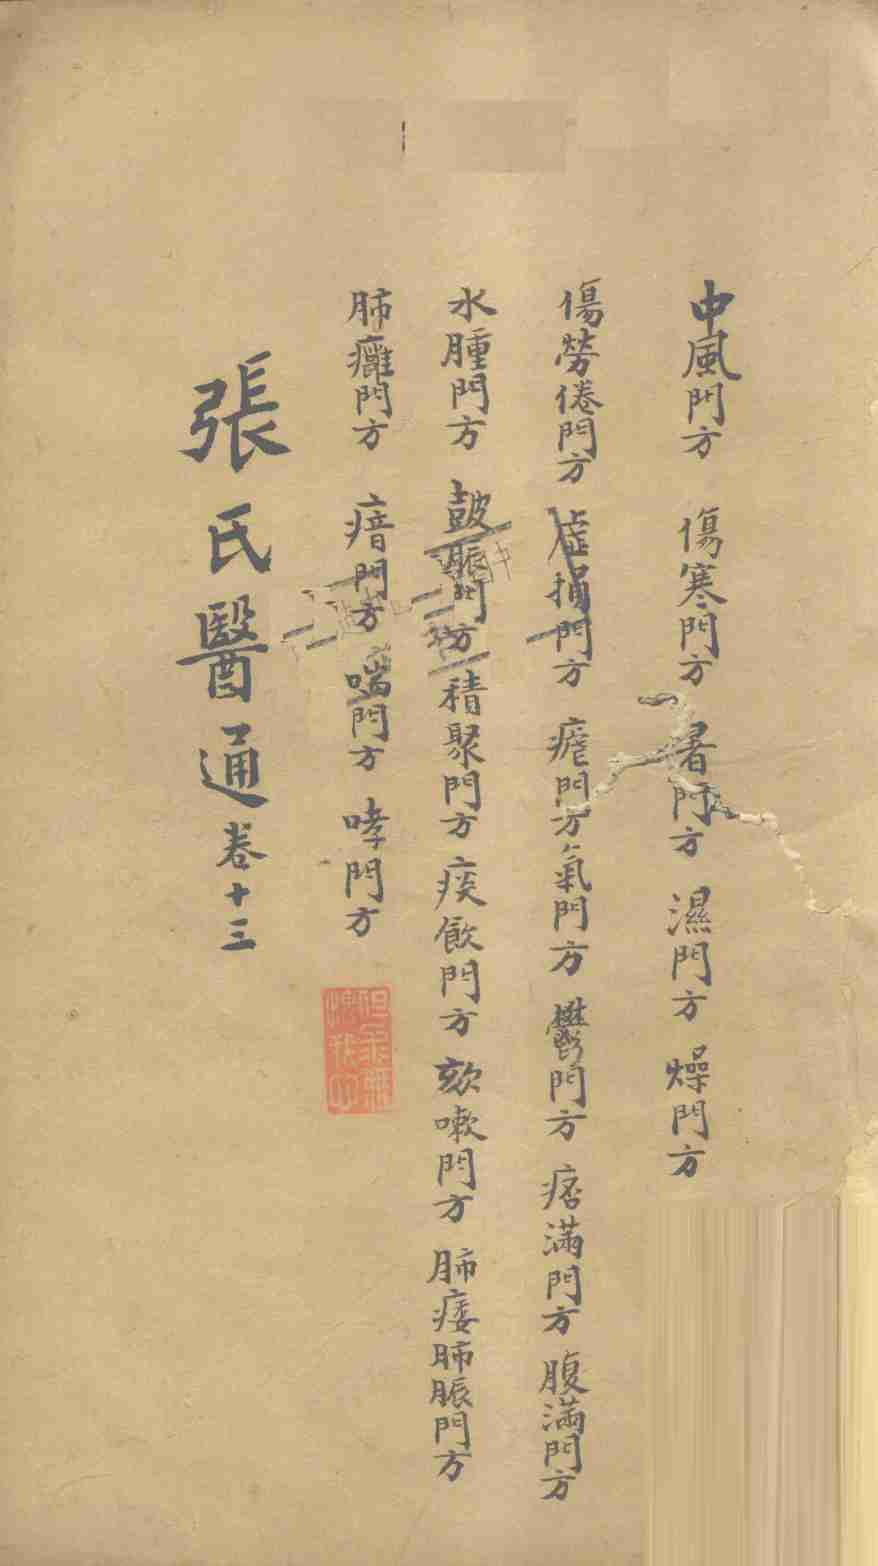 中風門方 傷寒門方 暑門方 濕門方 燥門方
傷勞倦門方 虛損門方 瘧門方 氣門方 鬱門方 痞滿門方 腹滿門方
水腫門方 鼓脹門方 積聚門方 痰飲門方 欬嗽門方 肺痿肺脹門方
肺癰門方 瘖門方 喘門方 哮門方
張氏醫通 卷十三